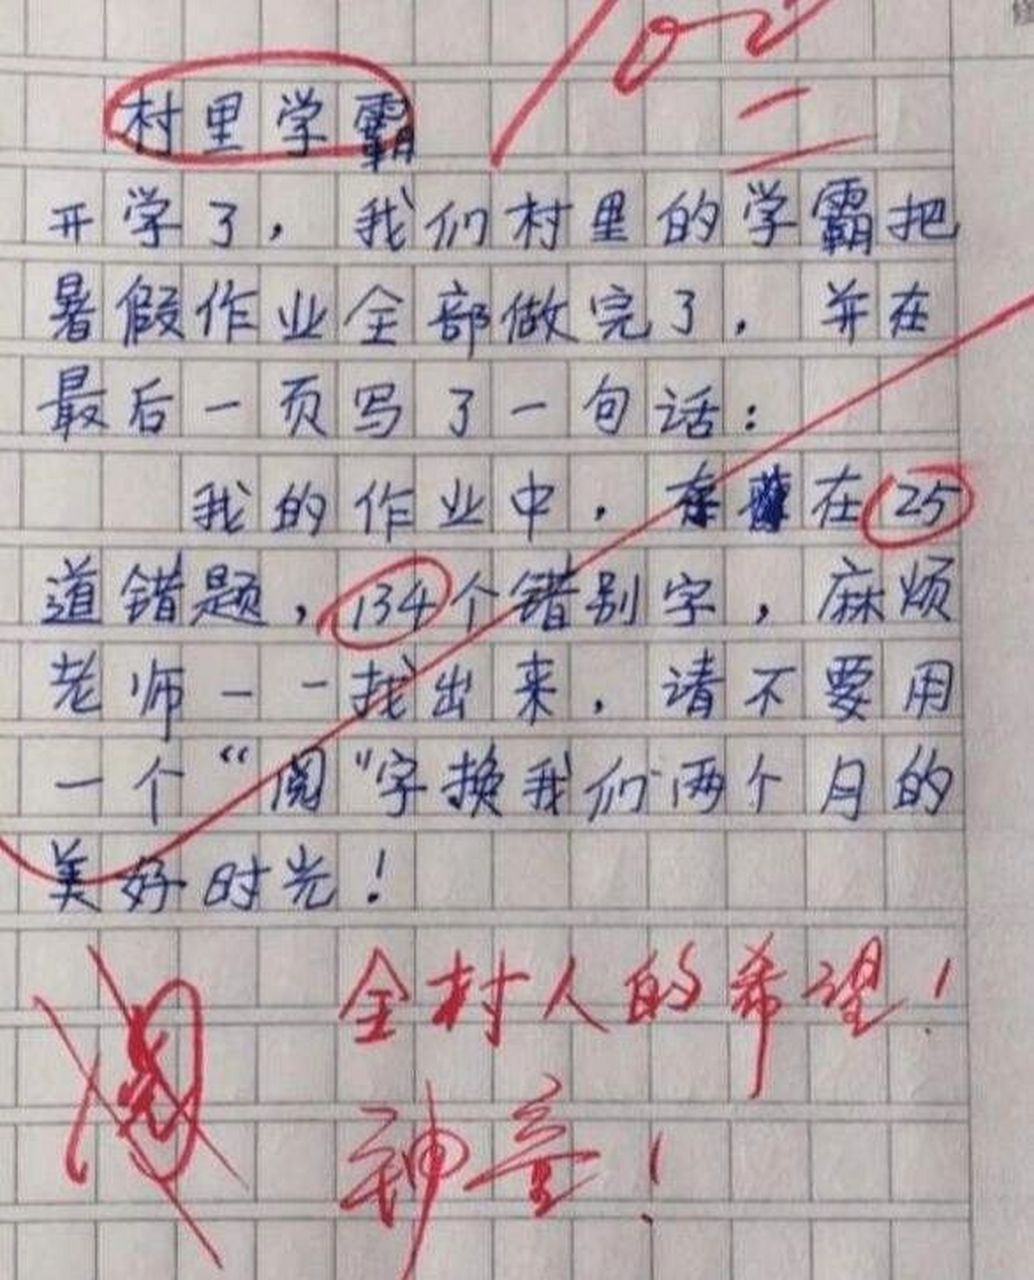 102
村里学霸
开学了，我们村里的学霸把
暑假作业全部做完了，并在
最后一页写了一句话：
我的作业中，在25
道错题，134个错别字，麻烦
老师一一找出来，请不要用
一个“阅”字换我们两个月的
美好时光！
全村人的希望！
神童！